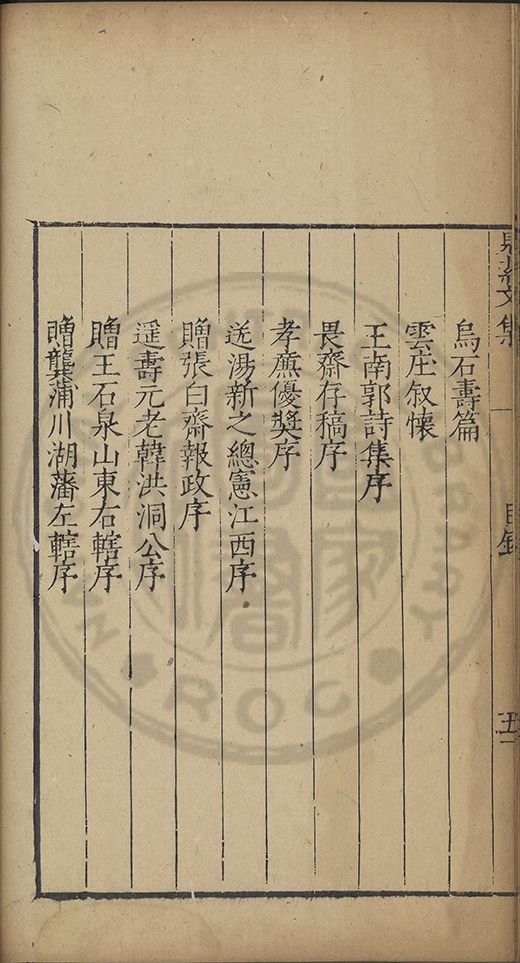 烏石壽篇
雲庄叙懷
王南郭詩集序
畏齋存稿序
孝廉優奬序
送湯新之總憲江西序
贈張白齋報政序
遥壽元老韓洪洞公序
贈王石泉山東右轄序
贈龔蒲川湖藩左轄序
文集
目錄
五